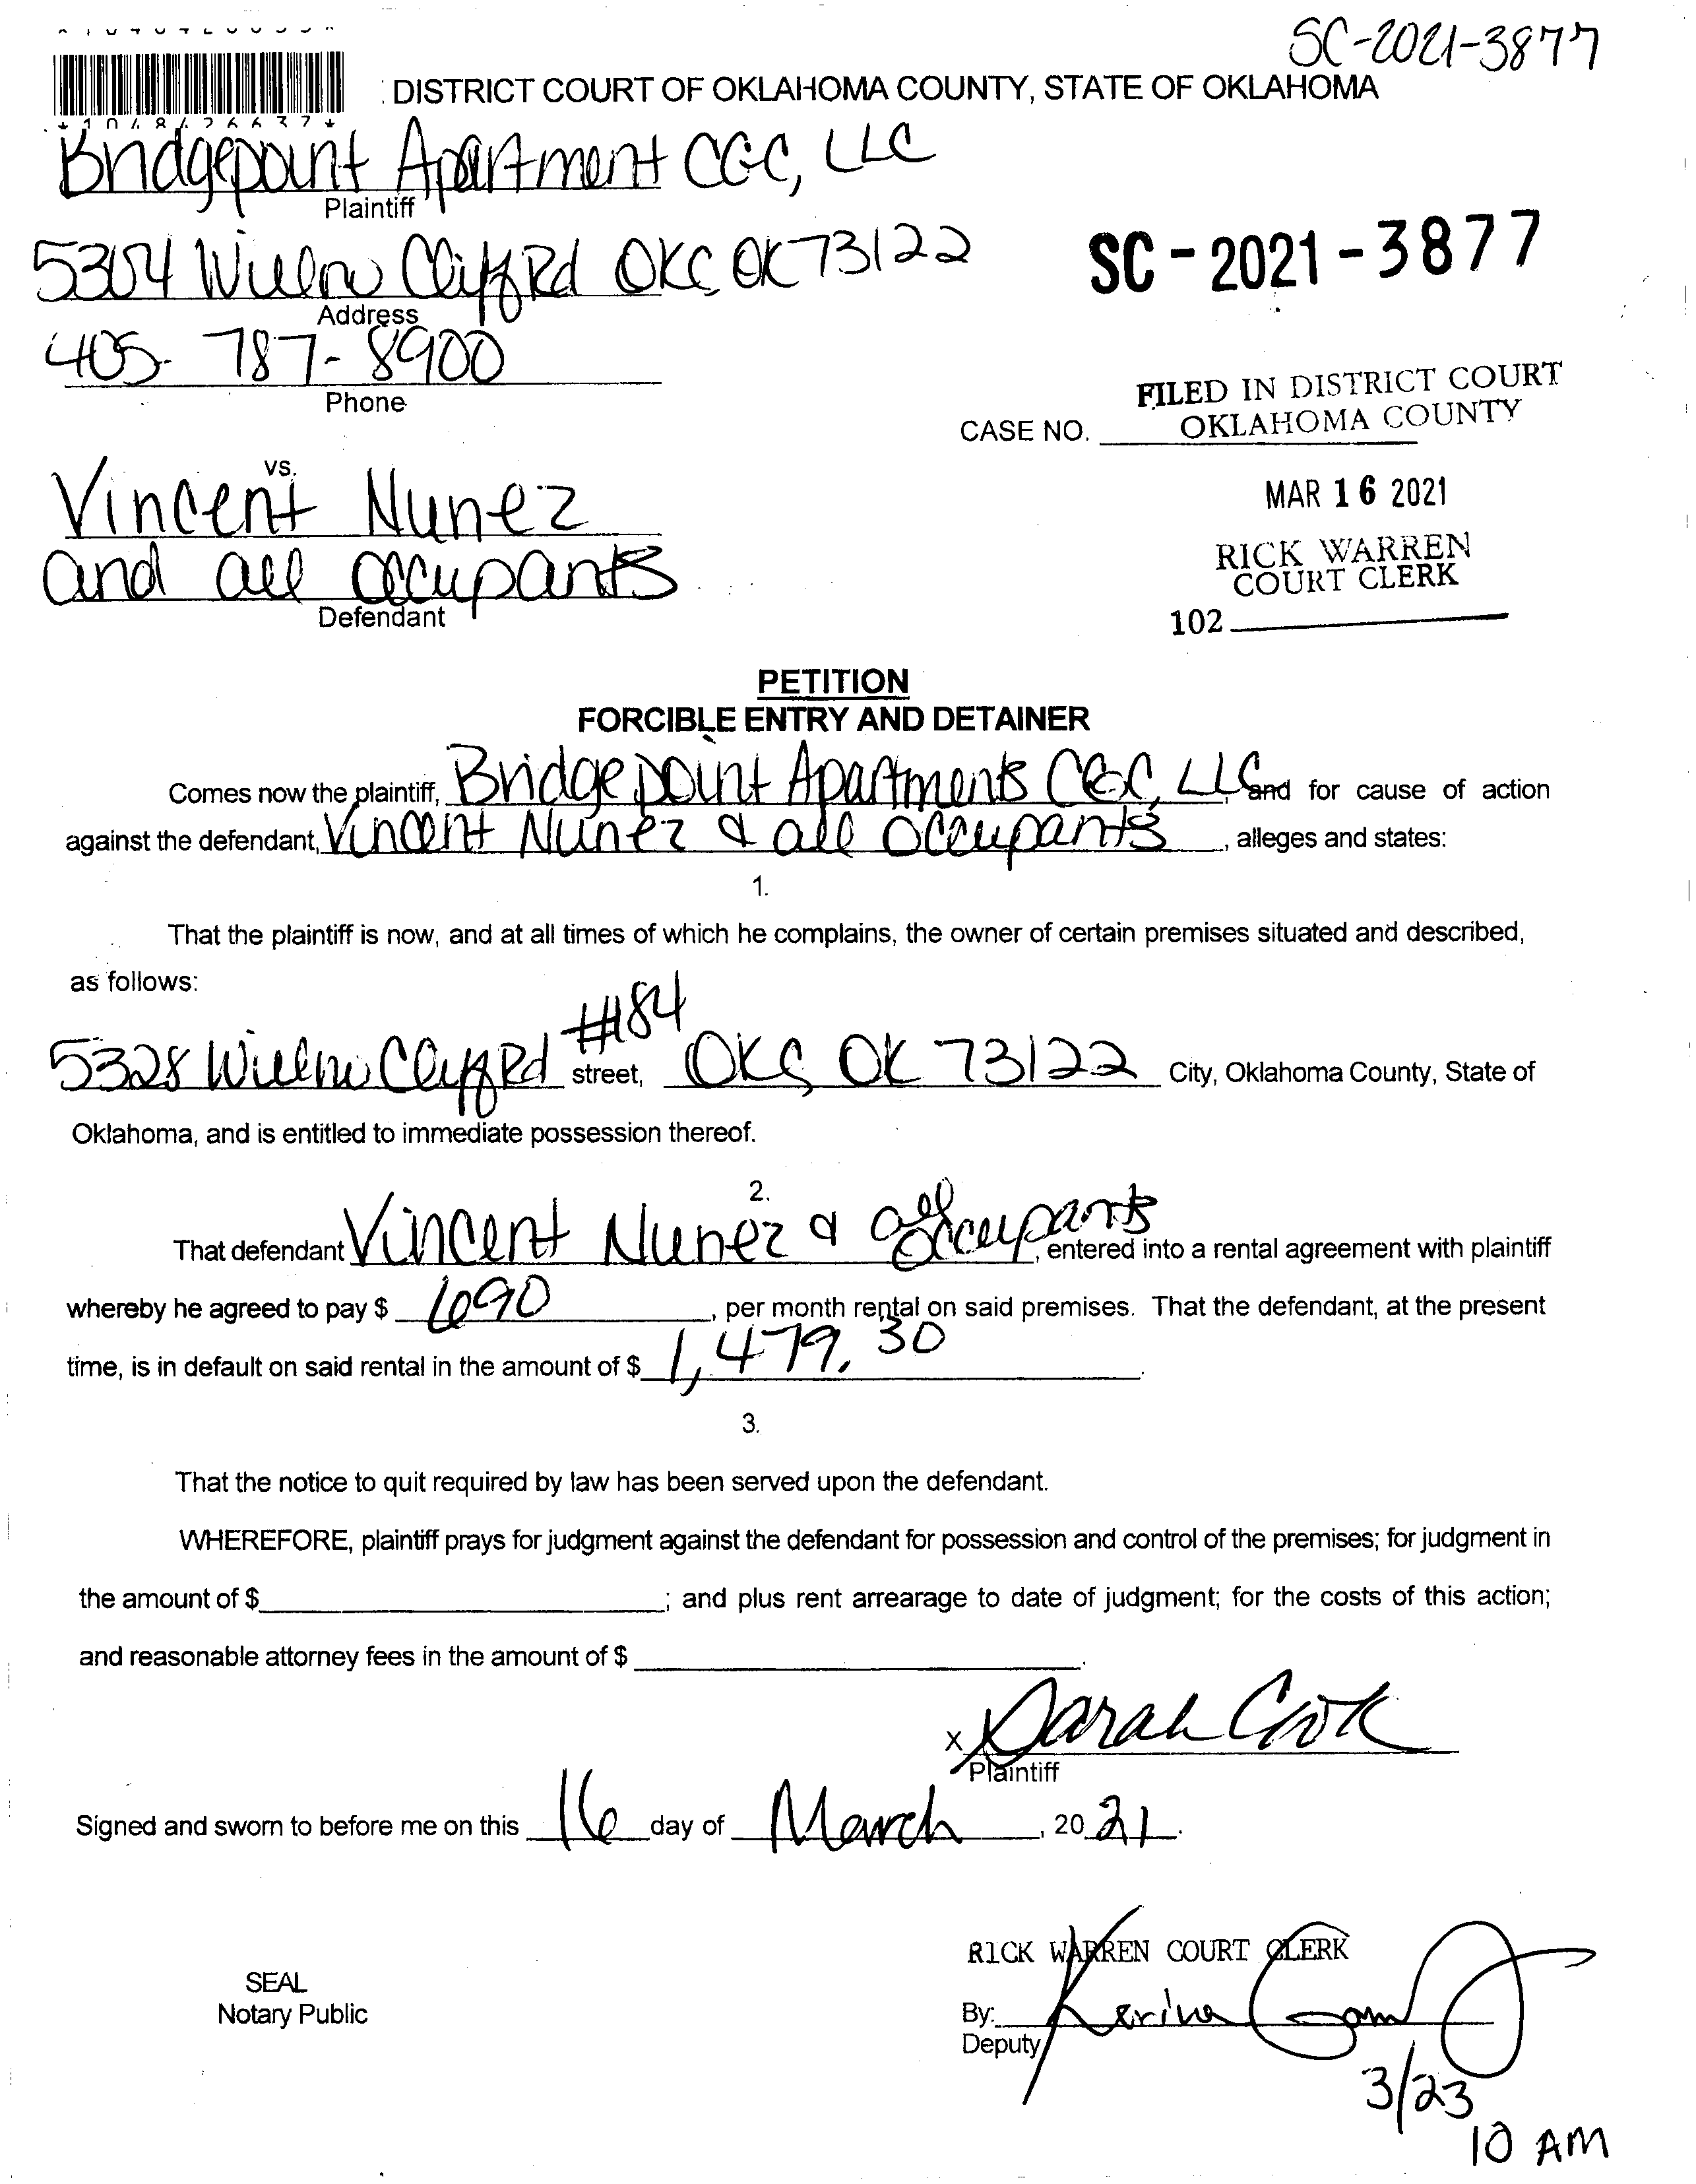 SC-2021-3877
DISTRICT COURT OF OKLAHOMA COUNTY, STATE OF OKLAHOMA
*1048426637*
Bridgepoint Apartment CGC, LLC
Plaintiff
5304 Willow Cliff Rd OKC, OK 73122
SC-2021-3877
Address
405-787-8900
Phone
FILED IN DISTRICT COURT
CASE NO. OKLAHOMA COUNTY
vs.
Vincent Nunez
MAR 16 2021
and all occupants
RICK WARREN
COURT CLERK
Defendant
102
PETITION
FORCIBLE ENTRY AND DETAINER
Comes now the plaintiff, Bridgepoint Apartments CGC, LLC, and for cause of action
against the defendant, Vincent Nunez & all occupants, alleges and states:
1.
That the plaintiff is now, and at all times of which he complains, the owner of certain premises situated and described,
as follows:
5328 Willow Cliff Rd #184 street, OKC, OK 73122 City, Oklahoma County, State of
Oklahoma, and is entitled to immediate possession thereof.
2.
That defendant Vincent Nunez & all occupants, entered into a rental agreement with plaintiff
whereby he agreed to pay $ 690, per month rental on said premises. That the defendant, at the present
time, is in default on said rental in the amount of $ 1,479.30.
3.
That the notice to quit required by law has been served upon the defendant.
WHEREFORE, plaintiff prays for judgment against the defendant for possession and control of the premises; for judgment in
the amount of $ ; and plus rent arrearage to date of judgment; for the costs of this action;
and reasonable attorney fees in the amount of $ .
x Sarah Cook
Plaintiff
Signed and sworn to before me on this 16 day of March, 2021.
RICK WARREN COURT CLERK
SEAL
Notary Public
By:
Deputy
3/23
10 AM